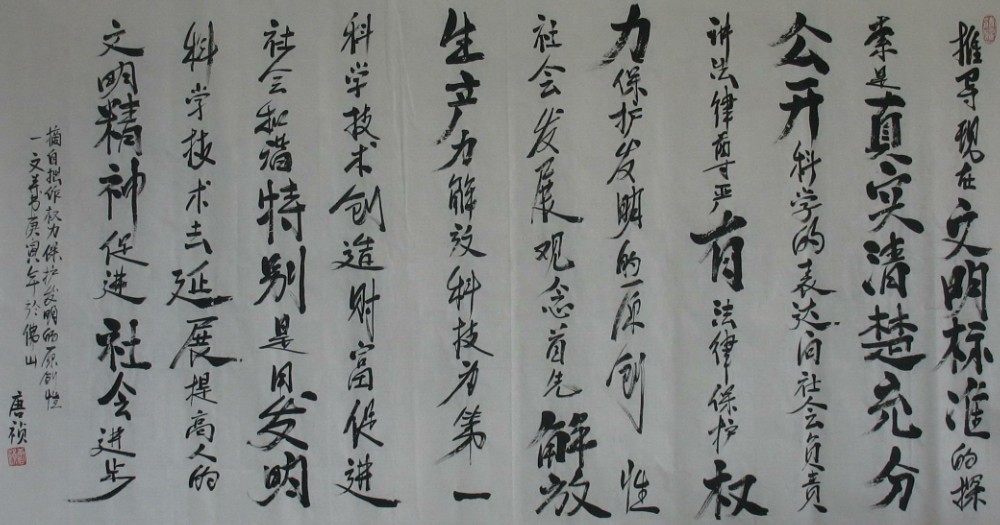 推导现在文明标准的探
索是真实清楚充分
公开科学的表达问社会负责
讲法律尊严有法律保护权
力保护发明的原创性
社会发展观念首先解放
生产力解放科技为第一
科学技术创造财富促进
社会和谐特别是用发明
科学技术去延展提高人的
文明精神促进社会进步
摘自拙作权力保护发明的原创性
一文并书庚寅年于佛山
唐祯